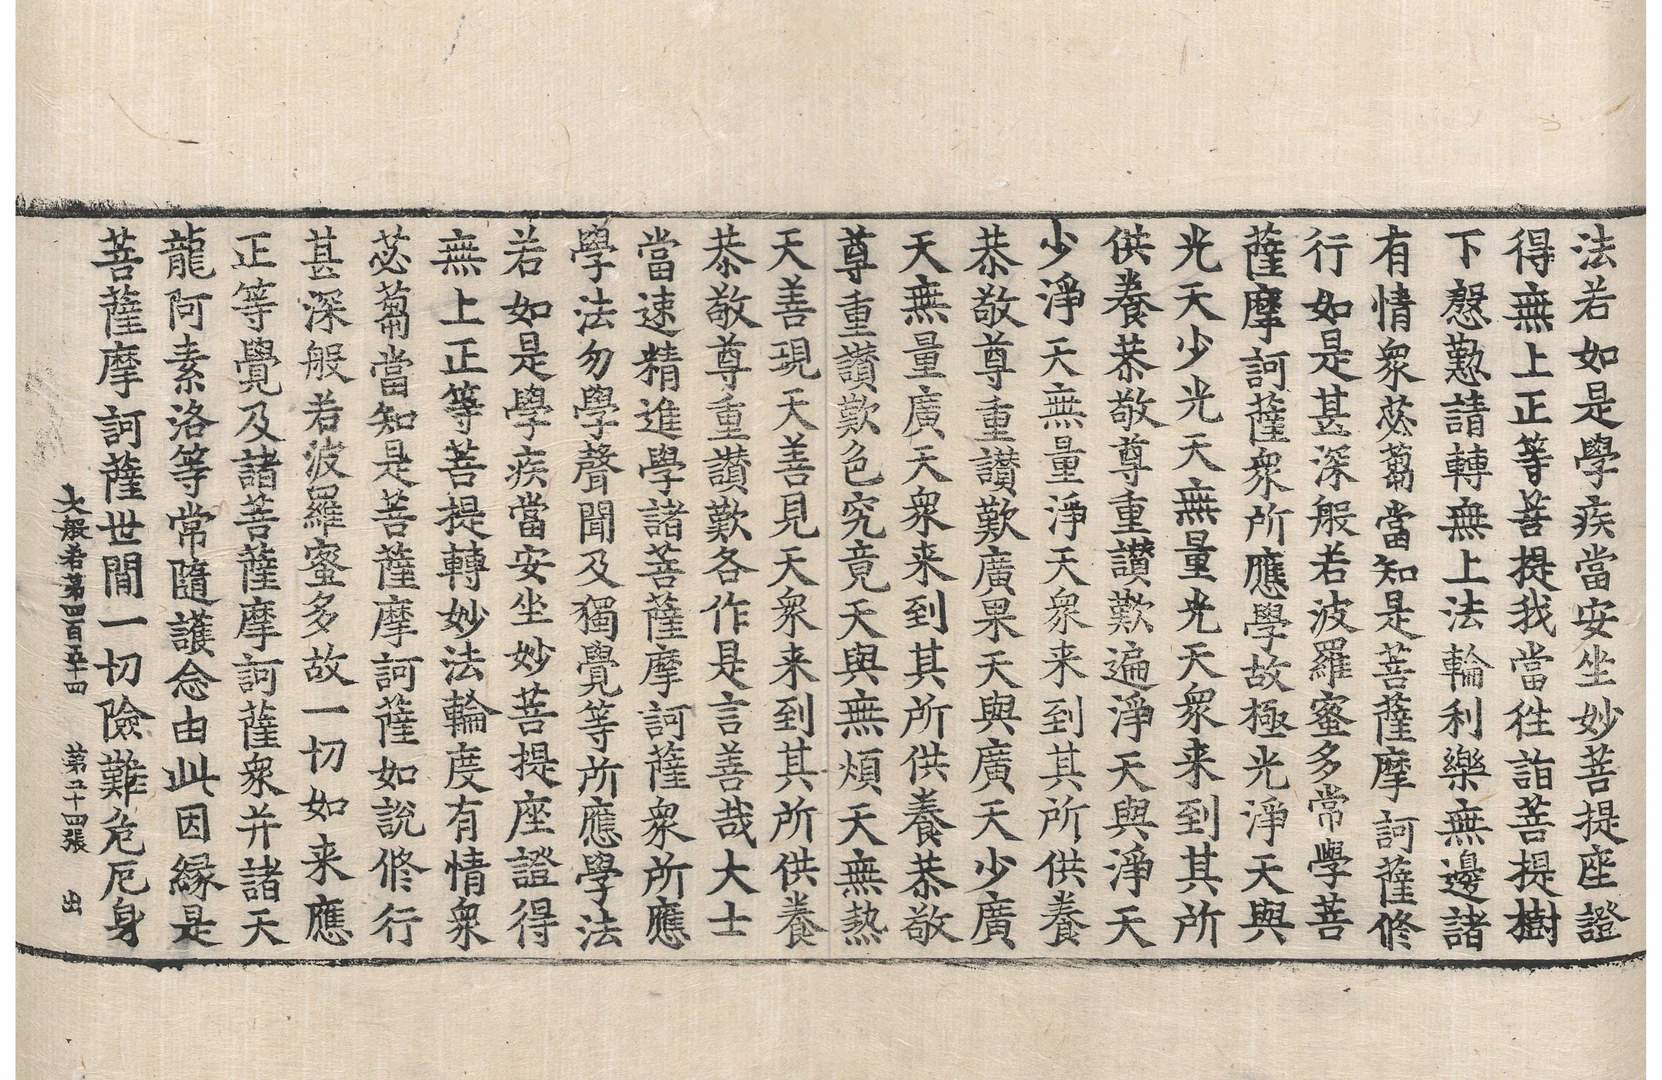 法若如是學疾當安坐妙菩提座證
得無上正等菩提我當往詣菩提樹
下慇懃請轉無上法輪利樂無邊諸
有情衆苾蒭當知是菩薩摩訶薩修
行如是甚深般若波羅蜜多常學菩
薩摩訶薩衆所應學故極光淨天與
光天少光天無量光天衆来到其所
供養恭敬尊重讚歎遍淨天與淨天
少淨天無量淨天衆来到其所供養
恭敬尊重讚歎廣果天與廣天少廣
天無量廣天衆来到其所供養恭敬
尊重讚歎色究竟天與無煩天無熱
天善現天善見天衆来到其所供養
恭敬尊重讚歎各作是言善哉大士
當速精進學諸菩薩摩訶薩衆所應
學法勿學聲聞及獨覺等所應學法
若如是學疾當安坐妙菩提座證得
無上正等菩提轉妙法輪度有情衆
苾蒭當知是菩薩摩訶薩如說修行
甚深般若波羅蜜多故一切如来應
正等覺及諸菩薩摩訶薩衆并諸天
龍阿素洛等常隨護念由此因緣是
菩薩摩訶薩世間一切險難危厄身
大般若第四百五十四 第二十四張 出